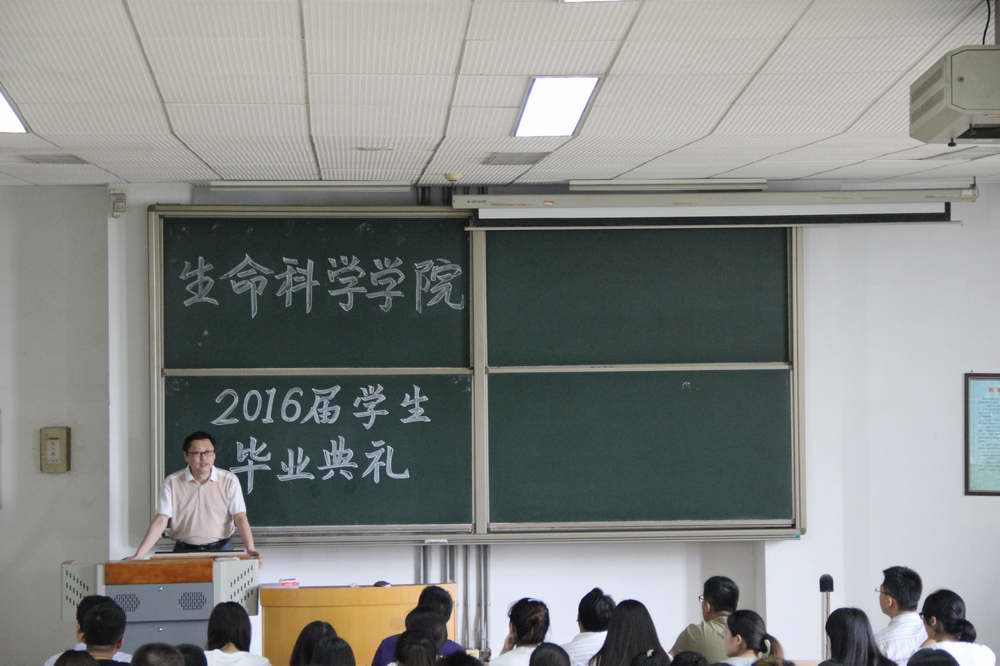 生命科学学院
2016届学生
毕业典礼